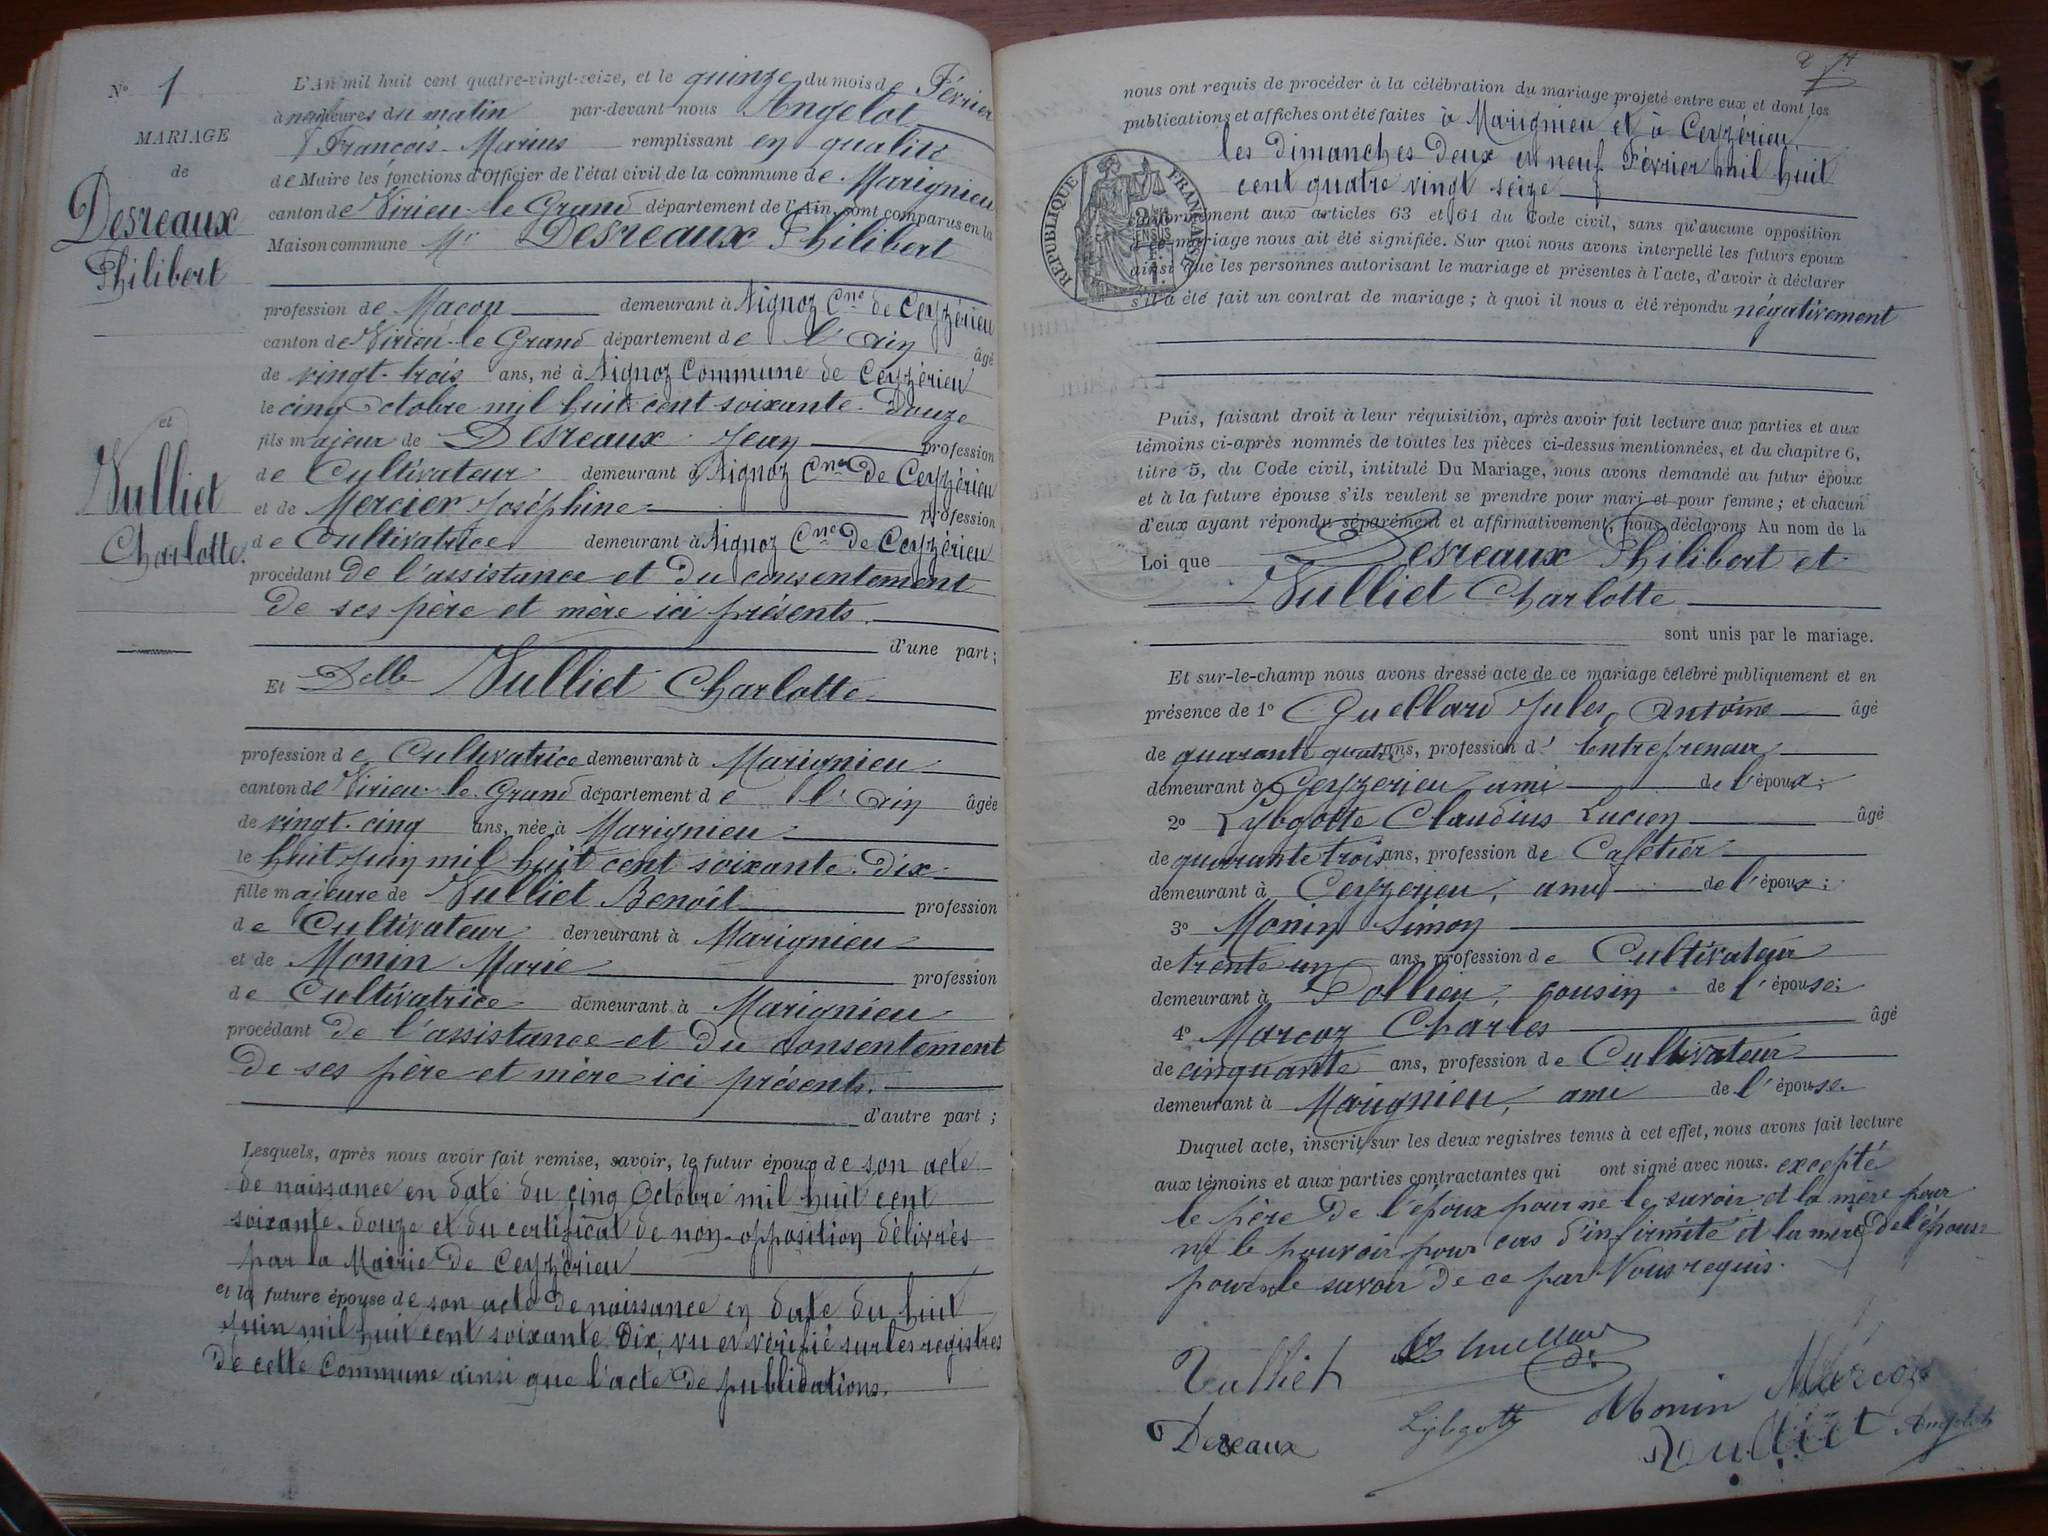 N° 1
MARIAGE
de
Desreaux
Philibert
et
Vulliet
Charlotte.
L'An mil huit cent quatre-vingt-seize, et le quinze du mois de Février
à neuf heures du matin par-devant nous Angelot
François-Marius remplissant en qualité
de Maire les fonctions d'Officier de l'état civil de la commune de Marignieu
canton de Virieu-le-Grand département de l'Ain, sont comparus en la
Maison commune Mr Desreaux Philibert
profession de Maçon demeurant à Aignoz Cne de Ceyzérieu
canton de Virieu-le-Grand département de l'Ain âgé
de vingt-trois ans, né à Aignoz Commune de Ceyzérieu
le cinq Octobre mil huit cent soixante-douze
fils majeur de Desreaux Jean profession
de Cultivateur demeurant à Aignoz Cne de Ceyzérieu
et de Mercier Joséphine profession
de Cultivatrice demeurant à Aignoz Cne de Ceyzérieu
procédant de l'assistance et du consentement
de ses père et mère ici présents.
d'une part;
Et Delle Vulliet Charlotte
profession de Cultivatrice demeurant à Marignieu
canton de Virieu-le-Grand département de l'Ain âgée
de vingt-cinq ans, née à Marignieu
le huit Juin mil huit cent soixante-dix
fille majeure de Vulliet Benoît profession
de Cultivateur demeurant à Marignieu
et de Monin Marie profession
de Cultivatrice demeurant à Marignieu
procédant de l'assistance et du consentement
de ses père et mère ici présents.
d'autre part;
Lesquels, après nous avoir fait remise, savoir, le futur époux de son acte
de naissance en date du cinq Octobre mil huit cent
soixante-douze et du certificat de non-opposition délivrés
par la Mairie de Ceyzérieu
et la future épouse de son acte de naissance en date du huit
Juin mil huit cent soixante Dix, vu et vérifié sur les registres
de cette Commune ainsi que l'acte de publications.
nous ont requis de procéder à la célébration du mariage projeté entre eux et dont les
publications et affiches ont été faites à Marignieu et à Ceyzérieu,
les dimanches deux et neuf Février mil huit
cent quatre vingt seize
RÉPUBLIQUE FRANÇAISE
conformément aux articles 63 et 64 du Code civil, sans qu'aucune opposition
à ce mariage nous ait été signifiée. Sur quoi nous avons interpellé les futurs époux
ainsi que les personnes autorisant le mariage et présentes à l'acte, d'avoir à déclarer
s'il a été fait un contrat de mariage; à quoi il nous a été répondu négativement
Puis, faisant droit à leur réquisition, après avoir fait lecture aux parties et aux
témoins ci-après nommés de toutes les pièces ci-dessus mentionnées, et du chapitre 6,
titre 5, du Code civil, intitulé Du Mariage, nous avons demandé au futur époux
et à la future épouse s'ils veulent se prendre pour mari et pour femme; et chacun
d'eux ayant répondu séparément et affirmativement, nous déclarons Au nom de la
Loi que Desreaux Philibert et
Vulliet Charlotte
sont unis par le mariage.
Et sur-le-champ nous avons dressé acte de ce mariage célébré publiquement et en
présence de 1° Guellard Jules Antoine âgé
de quarante quatre ans, profession d'Entrepreneur
demeurant à Ceyzerieu ami de l'époux;
2° Lybgotte Claudius Lucien âgé
de quarante trois ans, profession de Cafetier
demeurant à Ceyzerieu, ami de l'époux;
3° Monin Simon
de trente un ans, profession de Cultivateur
demeurant à Pollieu, cousin de l'épouse;
4° Marcoz Charles âgé
de cinquante ans, profession de Cultivateur
demeurant à Marignieu, ami de l'épouse.
Duquel acte, inscrit sur les deux registres tenus à cet effet, nous avons fait lecture
aux témoins et aux parties contractantes qui ont signé avec nous. excepté
le père de l'époux pour ne le savoir et la mère pour
ne le pouvoir pour cas d'infirmité et la mère de l'épouse
pour ne le savoir de ce par Nous requis.
Vulliet
Monin Marcoz
Dereaux Lybgotte Vulliet Angelot